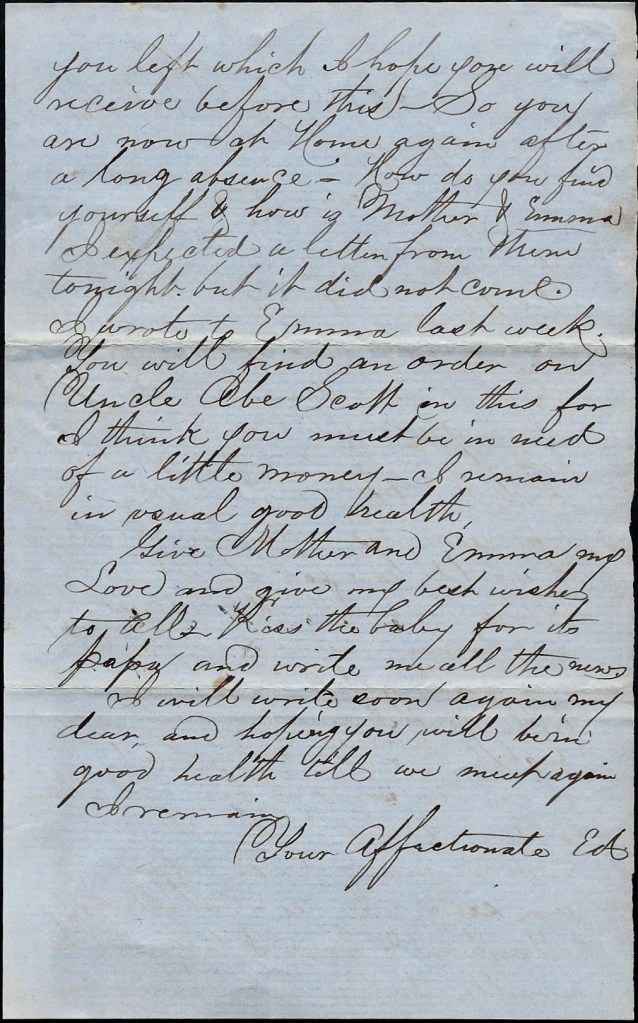 you left which I hope you will
receive before this – So you
are now at Home again after
a long absence – How do you find
yourself & how is Mother & Emma
I expected a letter from
tonight. but it did not come.
I wrote to Emma last week.
You will find an order on
Uncle Abe Scott in this for
I think you must be in need
of a little money – I remain
in usual good health,
Give Mother and Emma my
Love and give my best wishes
to all & Kiss the baby for its
papa and write me all the news
I will write soon again my
dear, and hoping you will be in
good health till we meet again
I remain
Your Affectionate Ed